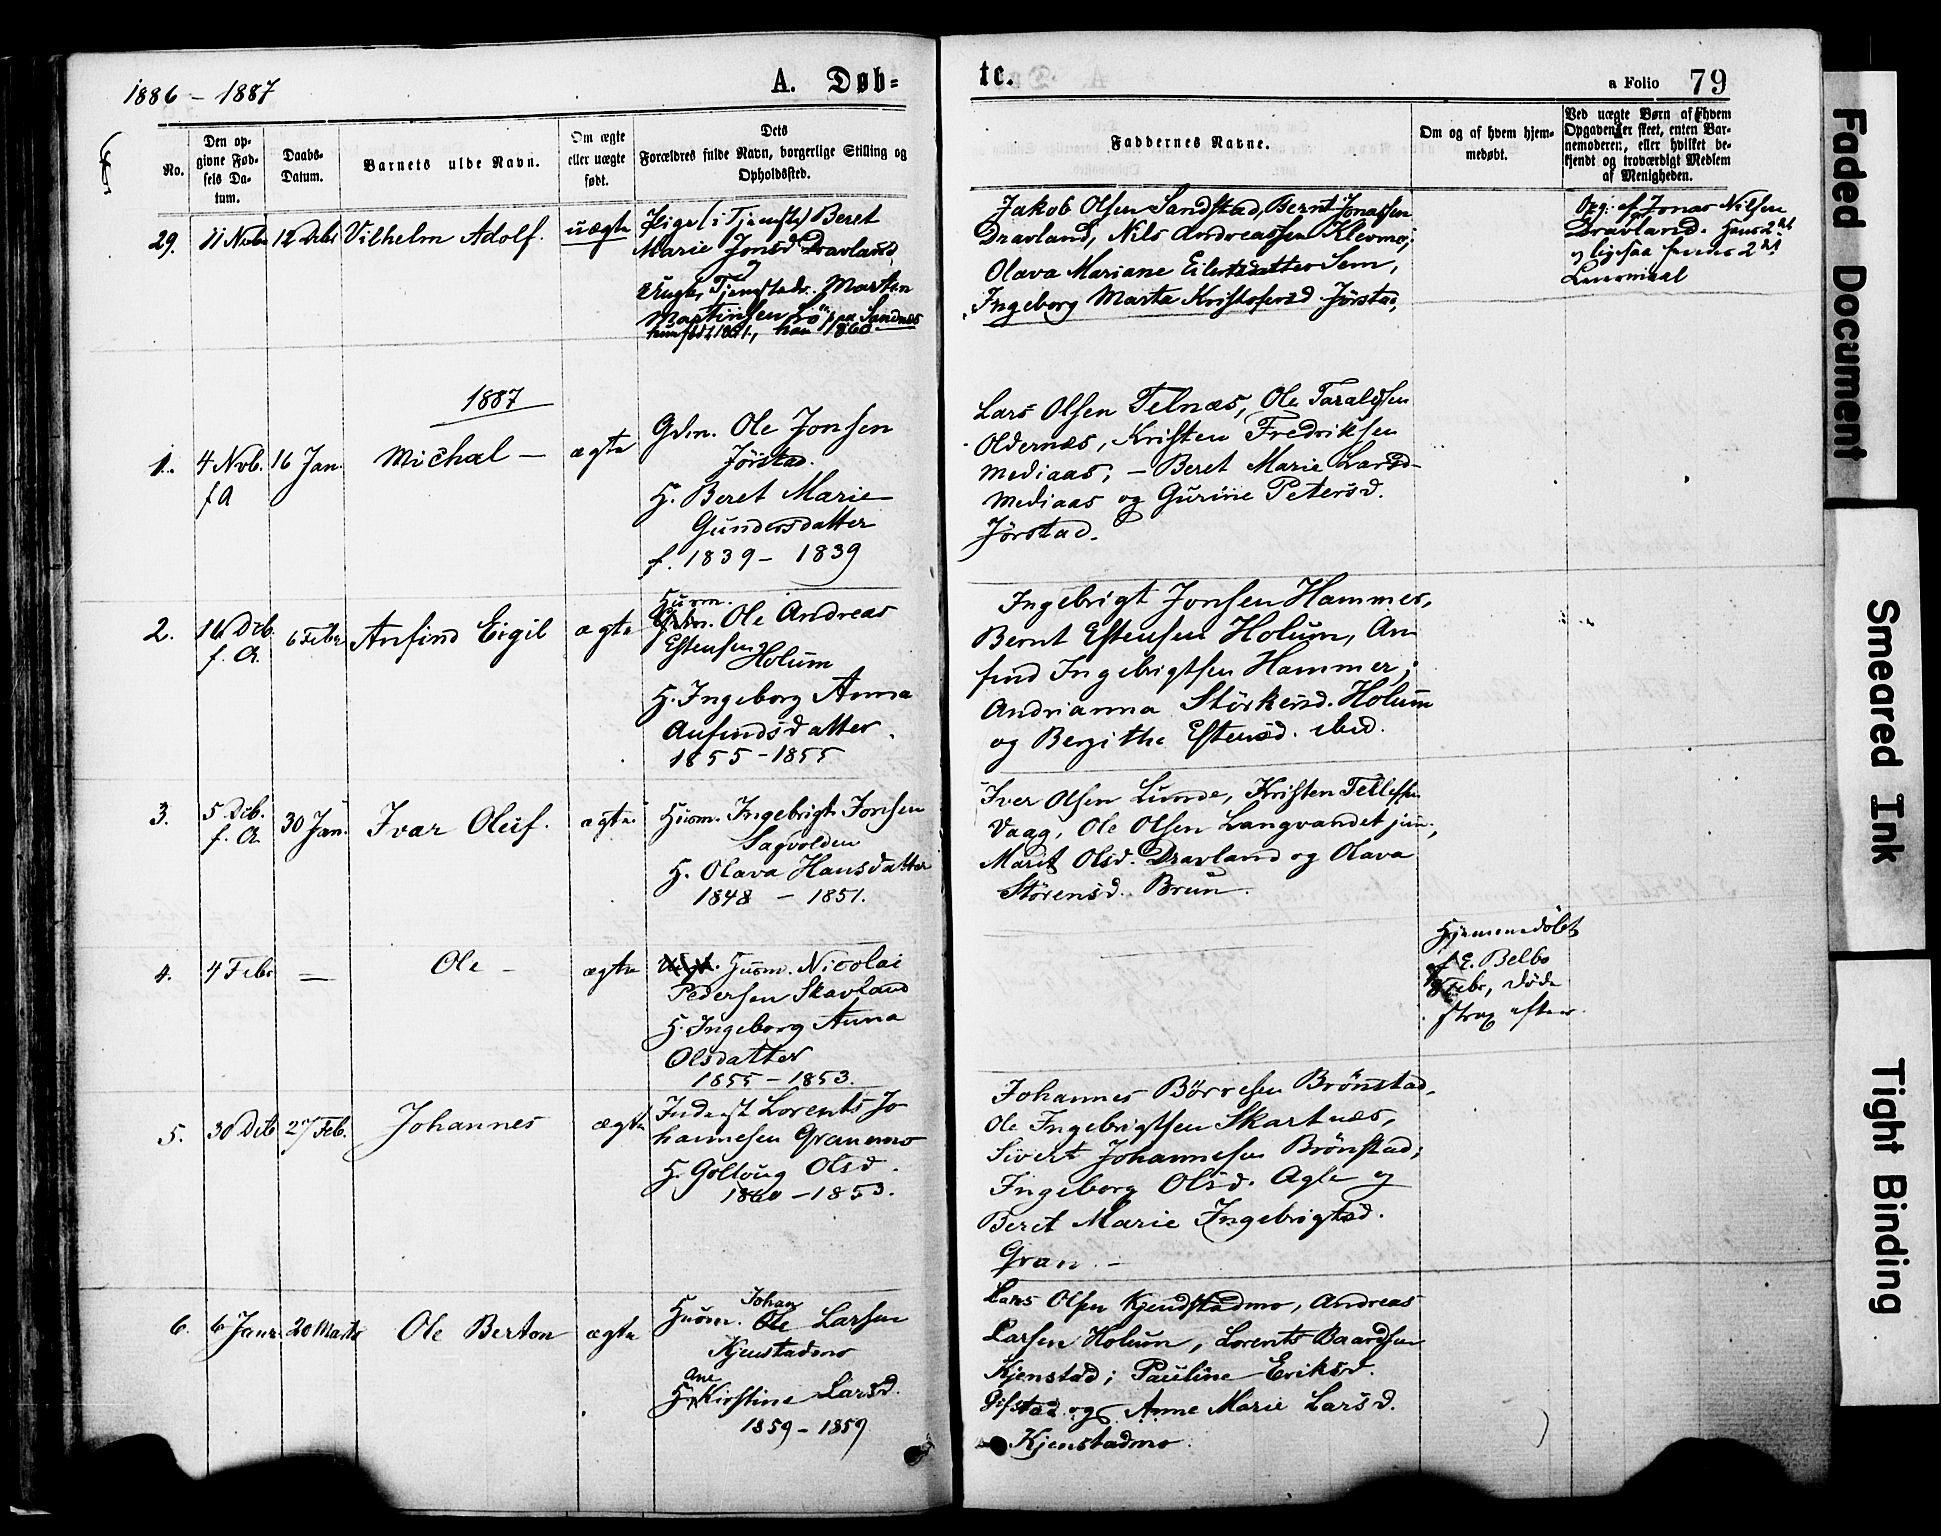 1886 – 1887
A. Døb=
tc.
a Folio 79
No.
Den op-
givne Fød-
sels Da-
tum.
Daabs-
Datum.
Barnets fulde Navn.
Om ægte
eller uægte
født.
Dets
Forældres fulde Navn, borgerlige Stilling og
Opholdssted.
Faddernes Navne.
Om og af hvem hjem-
medøbt.
Ved uægte Børn af hvem
Opgaven er skeet, enten Bar-
nemoderen, eller hvilket be-
kjendt og troværdigt Medlem
af Menigheden.
29.
11 Novbr
12 Debr
Vilhelm Adolf.
uægte
Pige (i Tjeneste) Beret
Marie Jonsd. Dravland
og
Ungk. Tjenstedr. Morten
Martinsen paa Sandnes
hun født 1861, han 1860
Jakob Olsen Sandstad, Bernt Jonassen
Dravland, Nils Andreassen Klevmo;
Olava Mariane Eilertsdatter Sem,
Ingeborg Marta Kristofersd Jørstad,
Opg. af Jonas Nilsen
Dravland. Hans 2det
og ligesaa hendes 2det
Leiermaal
1887
1.
4 Nvb.
f A
16 Jan.
Michal –
ægte
Gdm. Ole Jonsen
Jørstad.
H. Beret Marie
Gundersdatter
f. 1839 – 1839
Lars Olsen Telnæs, Ole Taraldsen
Oldernæs, Kristen Fredriksen
Mediaas; – Beret Marie Larsd–
Mediaas og Gurine Petersd.
Jørstad.
2.
16 Deb.
f. A.
6 Febr
Anfind Eigil
ægte
Husm.
Gdm. Ole Andreas
Estensen
Holum
H. Ingeborg Anna
Anfindsdatter.
1855 – 1855
Ingebrigt Jonsen Hammer,
Bernt Estensen Holum, An
find Ingebrigtsen Hammer;
Andrianna Størkersd. Holum
og Bergithe Estensd. ibid.
3.
5 Deb.
f. A.
30 Jan.
Ivar Oluf.
ægte
Husm. Ingebrigt Jonsen
Sagvolden
H. Olava Hansdatter
1848 – 1851.
Iver Olsen Lunde, Kristen Tellefsen
Vaag, Ole Olsen Langvandet jun.,
Marit Olsd. Dravland og Olava
Størensd. Brun.
4.
4 Febr
–
Ole –
ægte
Husm. Nicolai
Pedersen Skavland
H. Ingeborg Anna
Olsdatter
1855 – 1853.
Hjemmedøbt
af E. Belbo
8 Febr, døde
strax efter.
5.
30 Deb
27 Feb.
Johannes
ægte
Inderst Lorents Jo
hannesen Granmo
H. Golloug Olsd.
1860 – 1853.
Johannes Børresen Brønstad,
Ole Ingebrigtsen Skartnæs,
Sivert Johannesen Brønstad;
Ingeborg Olsd. Agle og
Beret Marie Ingebrigtsd.
Gran. –
6.
6 Janr.
20 Marts
Ole Berton
ægte
Johan
Husm. Ole Larsen
Kjenstadmo
Ane
H. Kirstine Larsd.
1859 – 1859
Lars Olsen Kjendstadmo, Andreas
Larsen Holum, Lorents Baardsen
Kjenstad; Pauline Eriksd.
Gifstad og Anne Marie Larsd.
Kjenstadmo.
Faded Document
Smeared Ink
Tight Binding